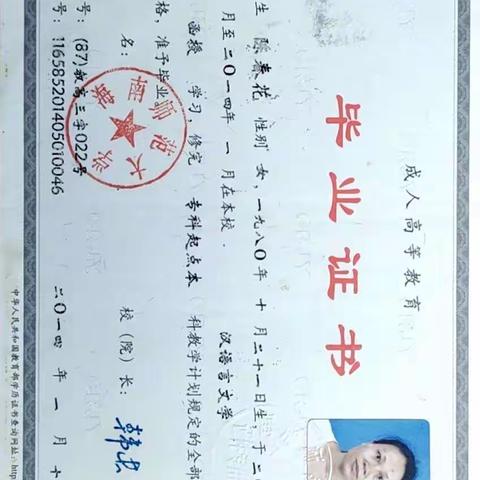 成人高等教育
毕业证书
生 陈春花 性别 女,一九八〇年 十 月二十一日生,于 二〇
月至二〇一四年 一 月在本校 汉语言文学
函授 学习,修完 专科起点本 科教学计划规定的全部
格,准予毕业。
名: 校(院)长:
号:(87)教高三字022号
号:116585201405010046 二〇一四 年 一 月 十
中华人民共和国教育部学历证书查询网址:http